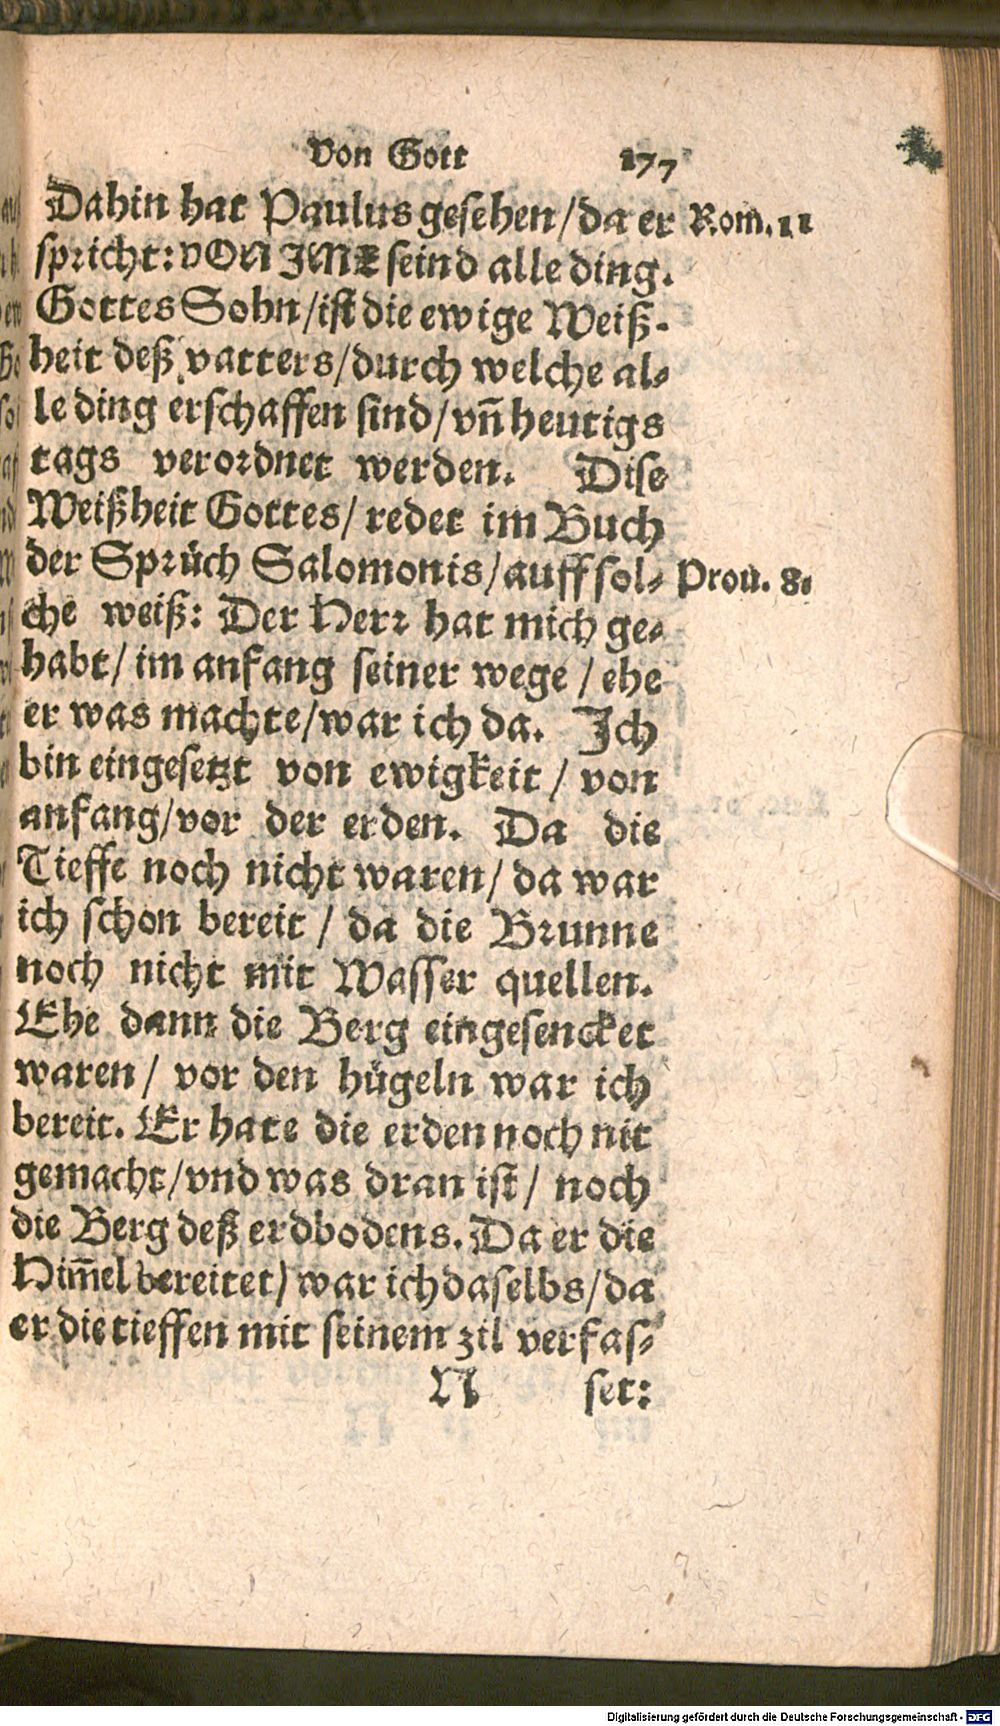 Von Gott 177
Dahin hat Paulus gesehen/da er Rom. 11
spricht: VON JME seind alle ding.
Gottes Sohn/ist die ewige Weiß-
heit deß vatters/durch welche al-
le ding erschaffen sind/vn̄ heutigs
tags verordnet werden. Dise
Weißheit Gottes/ redet im Buch
der Sprüch Salomonis/auff sol- Prou. 8.
che weiß: Der Herr hat mich ge-
habt/ im anfang seiner wege / ehe
er was machte/war ich da. Ich
bin eingesetzt von ewigkeit / von
anfang/vor der erden. Da die
Tieffe noch nicht waren/ da war
ich schon bereit / da die Brunne
noch nicht mit Wasser quellen.
Ehe dann die Berg eingesencket
waren / vor den hügeln war ich
bereit. Er hate die erden noch nit
gemacht/vnd was dran ist/ noch
die Berg deß erdbodens. Da er die
Him̄el bereitet) war ich daselbs/da
er die tieffen mit seinem zil verfas-
N set:
Digitalisierung gefördert durch die Deutsche Forschungsgemeinschaft - DFG